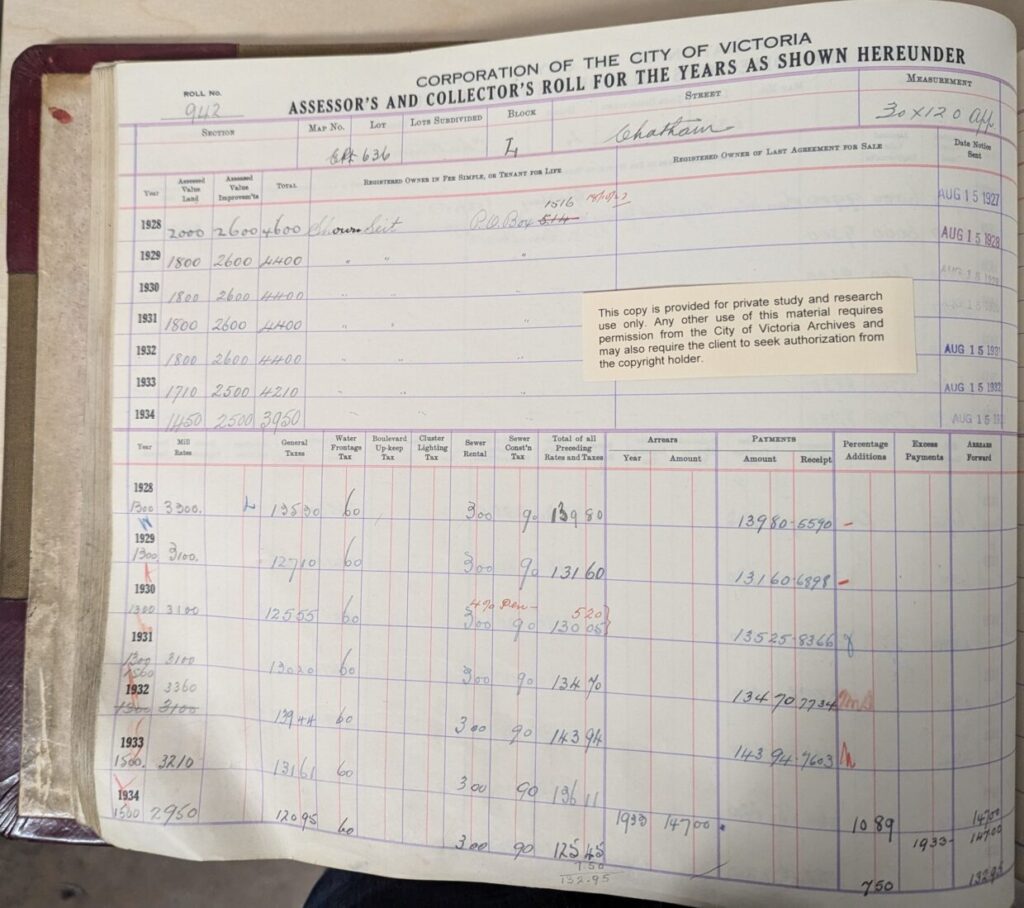 CORPORATION OF THE CITY OF VICTORIA
ASSESSOR'S AND COLLECTOR'S ROLL FOR THE YEARS AS SHOWN HEREUNDER
ROLL NO.
942
SECTION MAP NO. LOT LOTS SUBDIVIDED BLOCK STREET MEASUREMENT
636 L Chatham 30 x 120 App.
Year Assessed Value Land Assessed Value Improvem'ts TOTAL REGISTERED OWNER IN FEE SIMPLE, OR TENANT FOR LIFE REGISTERED OWNER OF LAST AGREEMENT FOR SALE Date Notice Sent
AUG 15 1927
1516
1928 2000 2600 4600 P.O. Box 514 AUG 15 1928
1929 1800 2600 4400 " " "
1930 1800 2600 4400 " " "
1931 1800 2600 4400 " " "
1932 1800 2600 4400 " " " AUG 15 1931
1933 1710 2500 4210 " " " AUG 15 1932
1934 1450 2500 3950 AUG 15
This copy is provided for private study and research
use only. Any other use of this material requires
permission from the City of Victoria Archives and
may also require the client to seek authorization from
the copyright holder.
Year Mill Rates General Taxes Water Frontage Tax Boulevard Up-keep Tax Cluster Lighting Tax Sewer Rental Sewer Const'n Tax Total of all Preceding Rates and Taxes Arrears Year Amount PAYMENTS Amount Receipt Percentage Additions Excess Payments Arrears Forward
1928
1300 3300. 13530 60 300 90 13980 13980 5590 -
1929
1300 3100. 12710 60 300 90 13160 13160 6898 -
1930
4% Pen- 520
1300 3100 12555 60 300 90 13005 13525 8366
1931
1300 3100 13020 60 300 90 13470 13470 7734
1560
1932 3360
1300 3100 13944 60 300 90 14394 14394 7603
1933
1500. 3210 13161 60 300 90 13611 1089 14700
1934
1500 2950 12095 60 300 90 12545 1933 14700 1933- 14700
7.50 750 13295
132.95